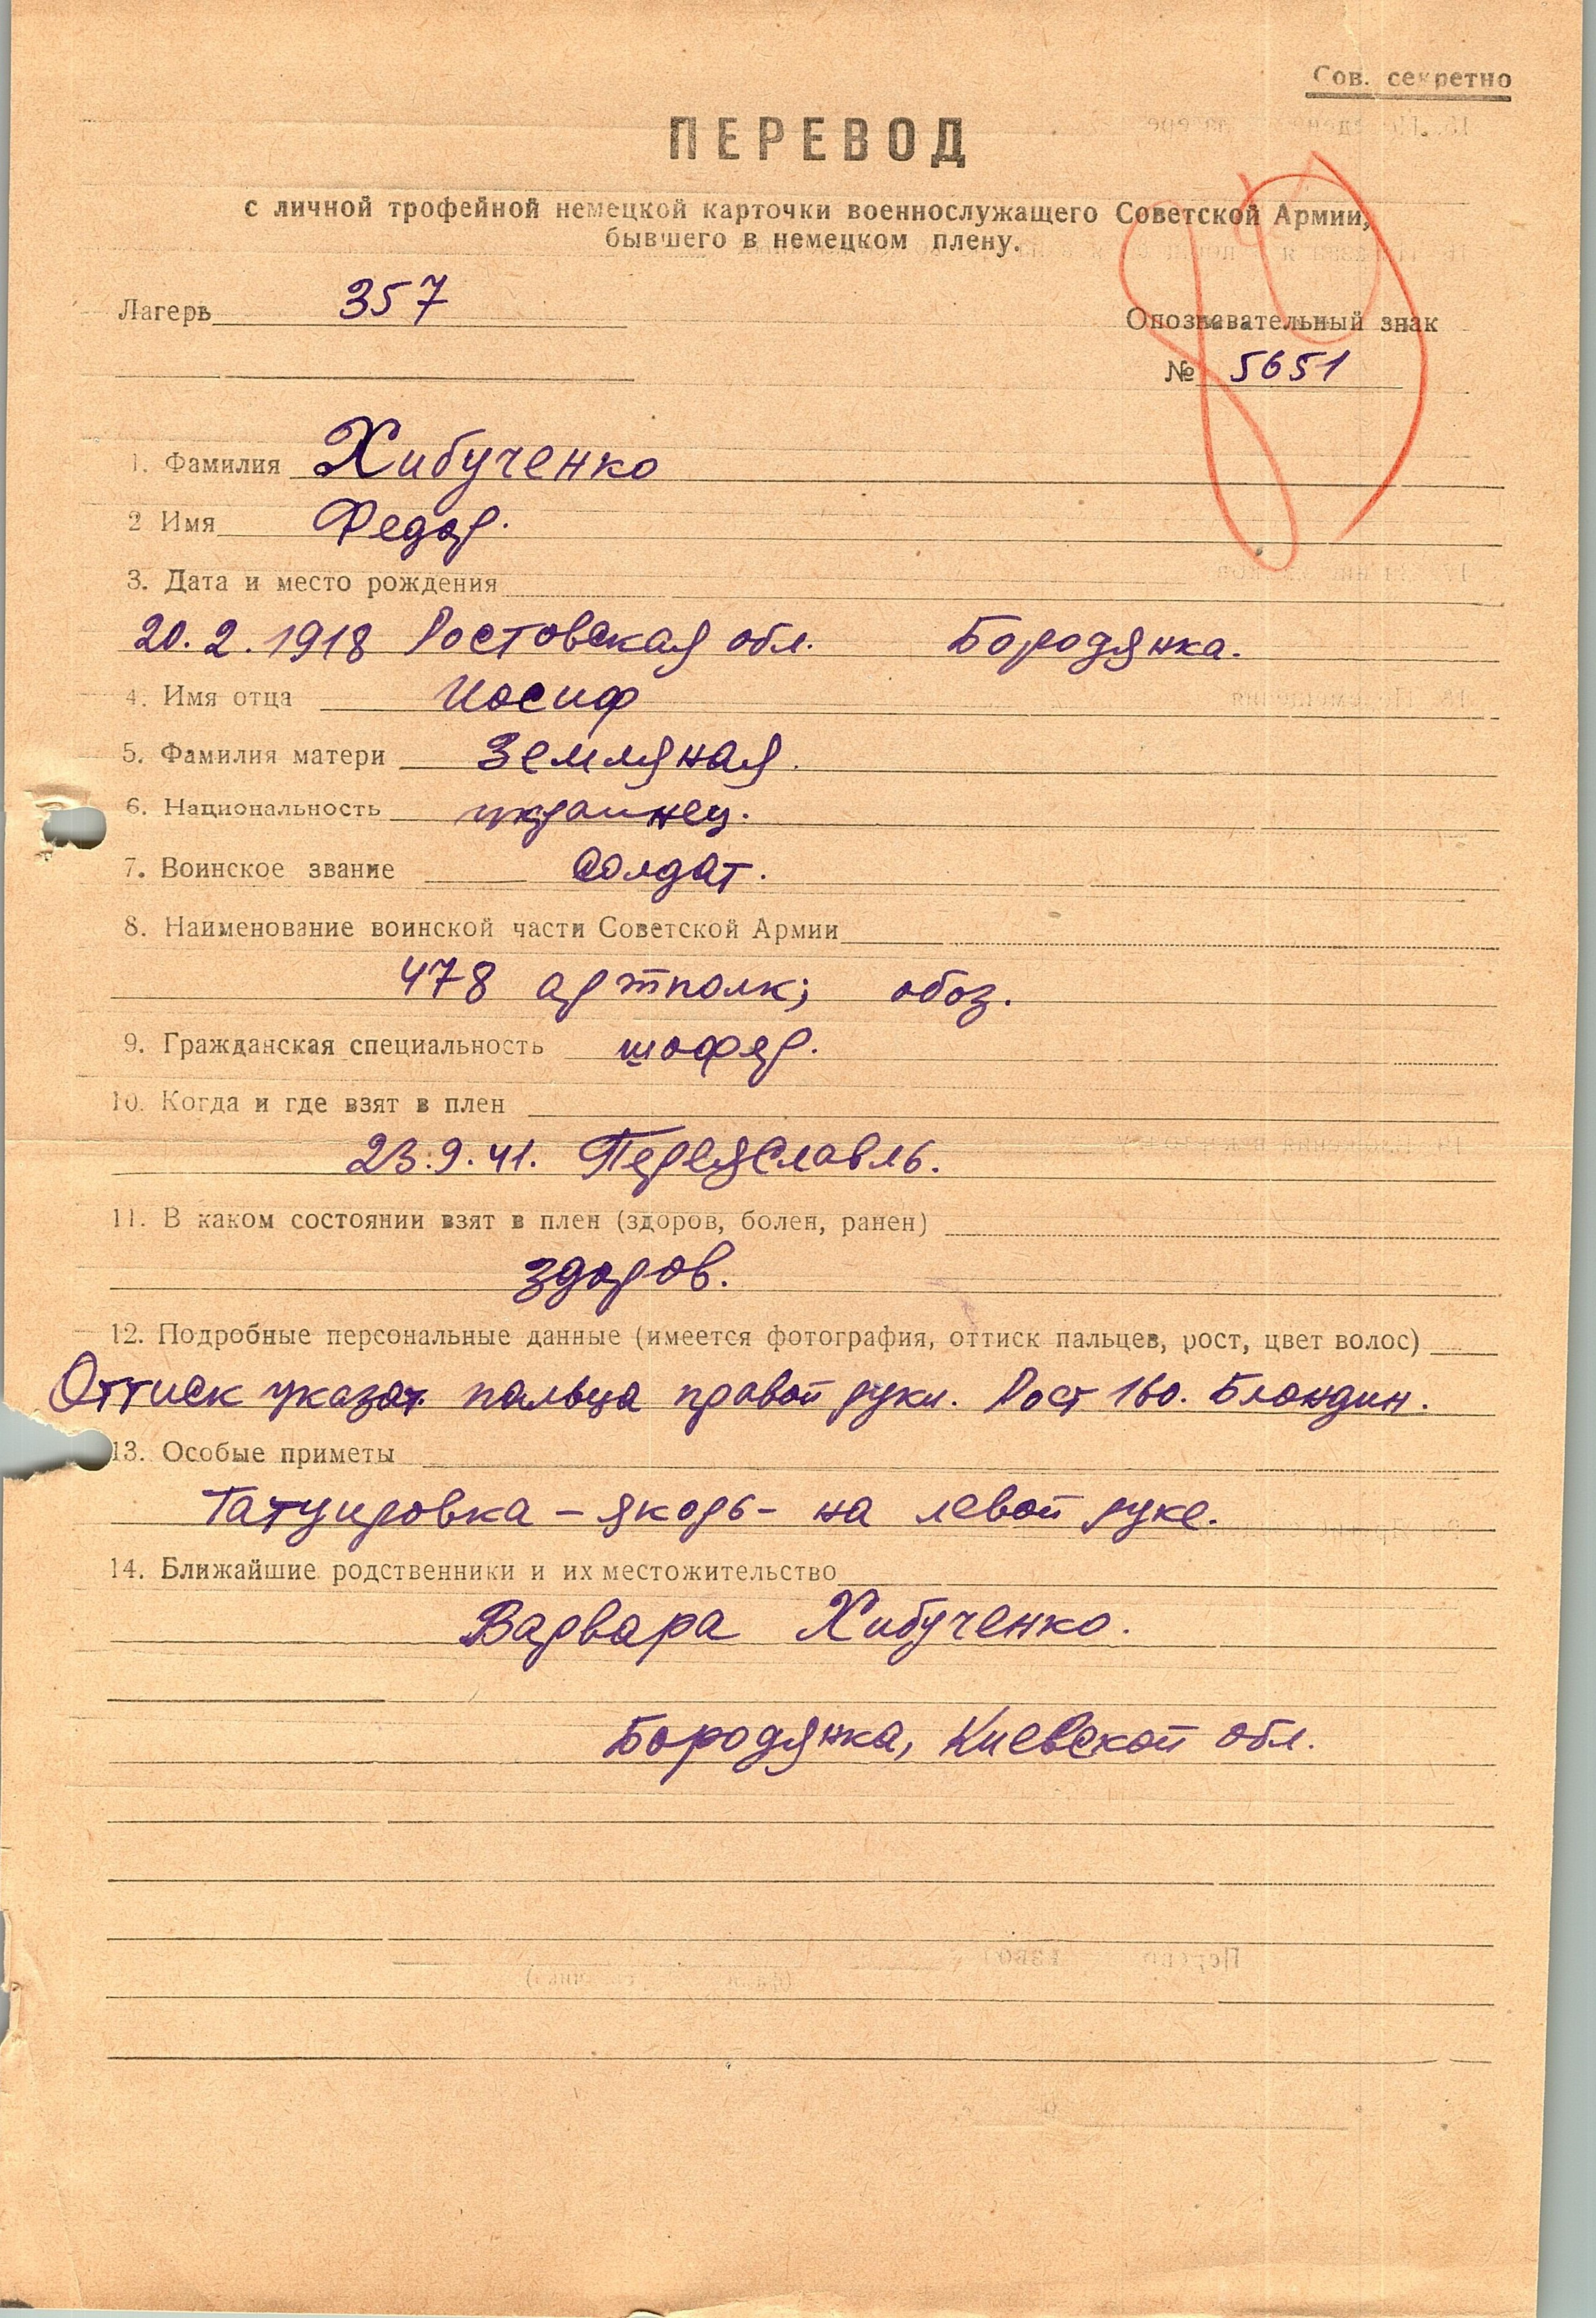 Сов. секретно
ПЕРЕВОД
с личной трофейной немецкой карточки военнослужащего Советской Армии,
бывшего в немецком плену.
Лагерь 357
Опознавательный знак
№ 5651
1. Фамилия Хибученко
2 Имя Федор.
3. Дата и место рождения
20.2.1918 Ростовская обл. Бородянка.
4. Имя отца Иосиф
5. Фамилия матери Земляная.
6. Национальность украинец.
7. Воинское звание Солдат.
8. Наименование воинской части Советской Армии
478 артполк; обоз.
9. Гражданская специальность шофер.
10. Когда и где взят в плен
23.9.41. Переяславль.
11. В каком состоянии взят в плен (здоров, болен, ранен)
здоров.
12. Подробные персональные данные (имеется фотография, оттиск пальцев, рост, цвет волос)
Оттиск указат. пальца правой руки. Рост 160. Блондин.
13. Особые приметы
Татуировка – якорь – на левой руке.
14. Ближайшие родственники и их местожительство
Варвара Хибученко.
Бородянка, Киевской обл.